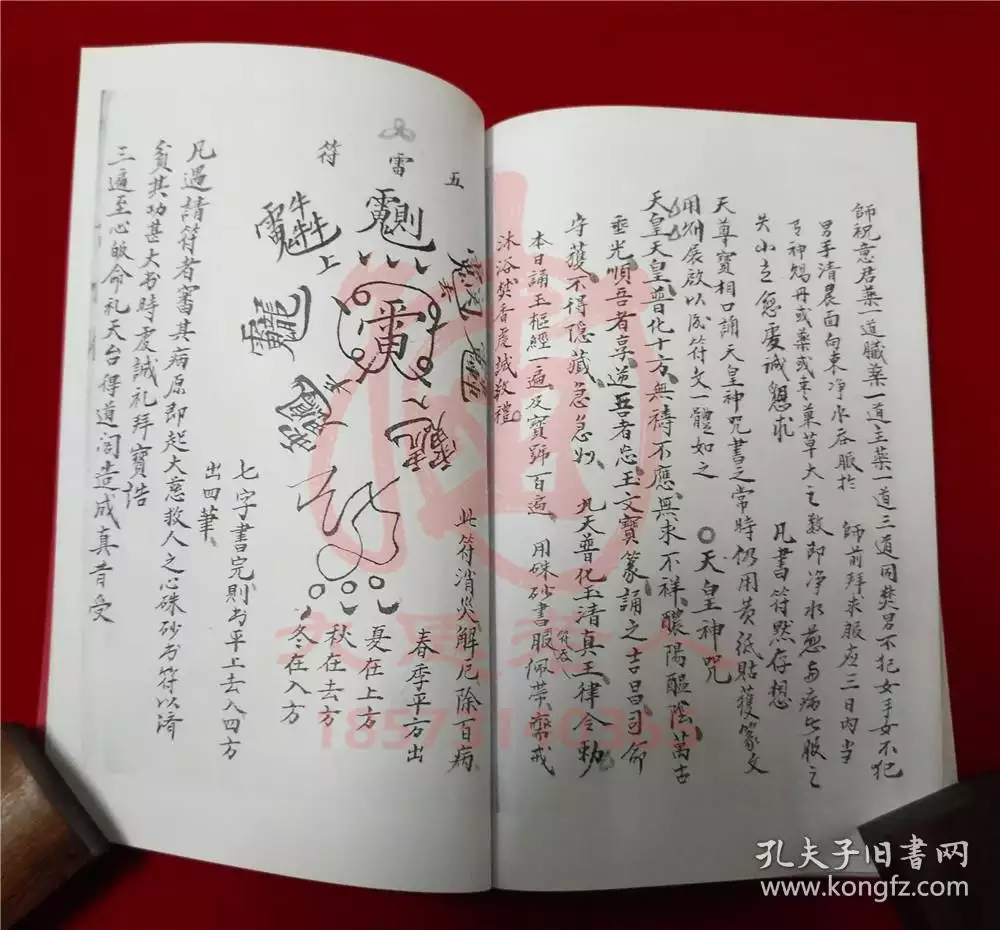 師祝意君藥一道臟藥一道主藥一道三道同焚男不犯女手女不犯
男手清晨面向東净水吞服於 師前拜求服应三日内当
弓神鸩丹或藥或枣菓草大之数即净水葱与病人服之
失小立愈虔诚懇求 凡書符默存想
天尊寶相口誦天皇神咒書之常時仍用黄紙貼護篆文
用 展啟以後符文一體如之 天皇神咒
天皇天皇普化十方無禱不應無求不祥 陽 陰萬古
垂光順吾者享逆吾者 玉文寶篆誦之吉昌司命
守護不得隐藏急急如 九天普化玉清真王律令勅
本日誦玉樞經一遍及寶號百遍 用硃砂書服佩带齋戒
沐浴焚香虔誠敬禮
五
雷
符
上
此符消災解厄除百病
春季平方出
夏在上方
秋在去方
冬在入方
七字書完則书平上去入四方
出四筆
凡遇請符者審其病原即起大慈救人之心硃砂书符以濟
貧其功甚大书時虔誠礼拜寶誥
三遍至心皈命礼天台得道 造成真昔受
18573140365
孔夫子旧書网
www.kongfz.com